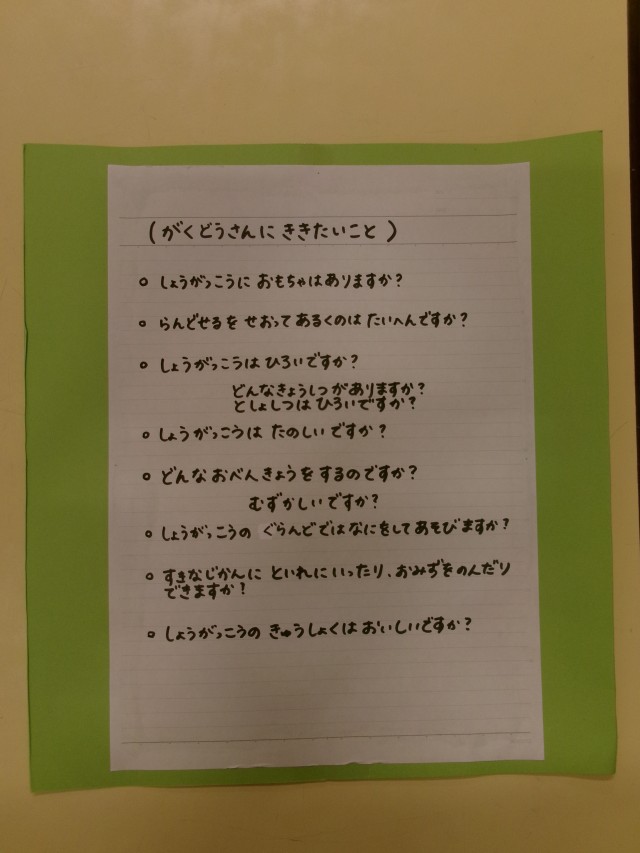 (がくどうさんに ききたいこと)
○ しょうがっこうに おもちゃはありますか?
○ らんどせるを せおって あるくのは たいへんですか?
○ しょうがっこうは ひろいですか?
どんなきょうしつがありますか?
としょしつは ひろいですか?
○ しょうがっこうは たのしいですか?
○ どんな おべんきょうを するのですか?
むずかしいですか?
○ しょうがっこうの ぐらんどではなにをして あそびますか?
○ すきなじかんに といれに いったり、おみずをのんだり
できますか?
○ しょうがっこうの きゅうしょくは おいしいですか?